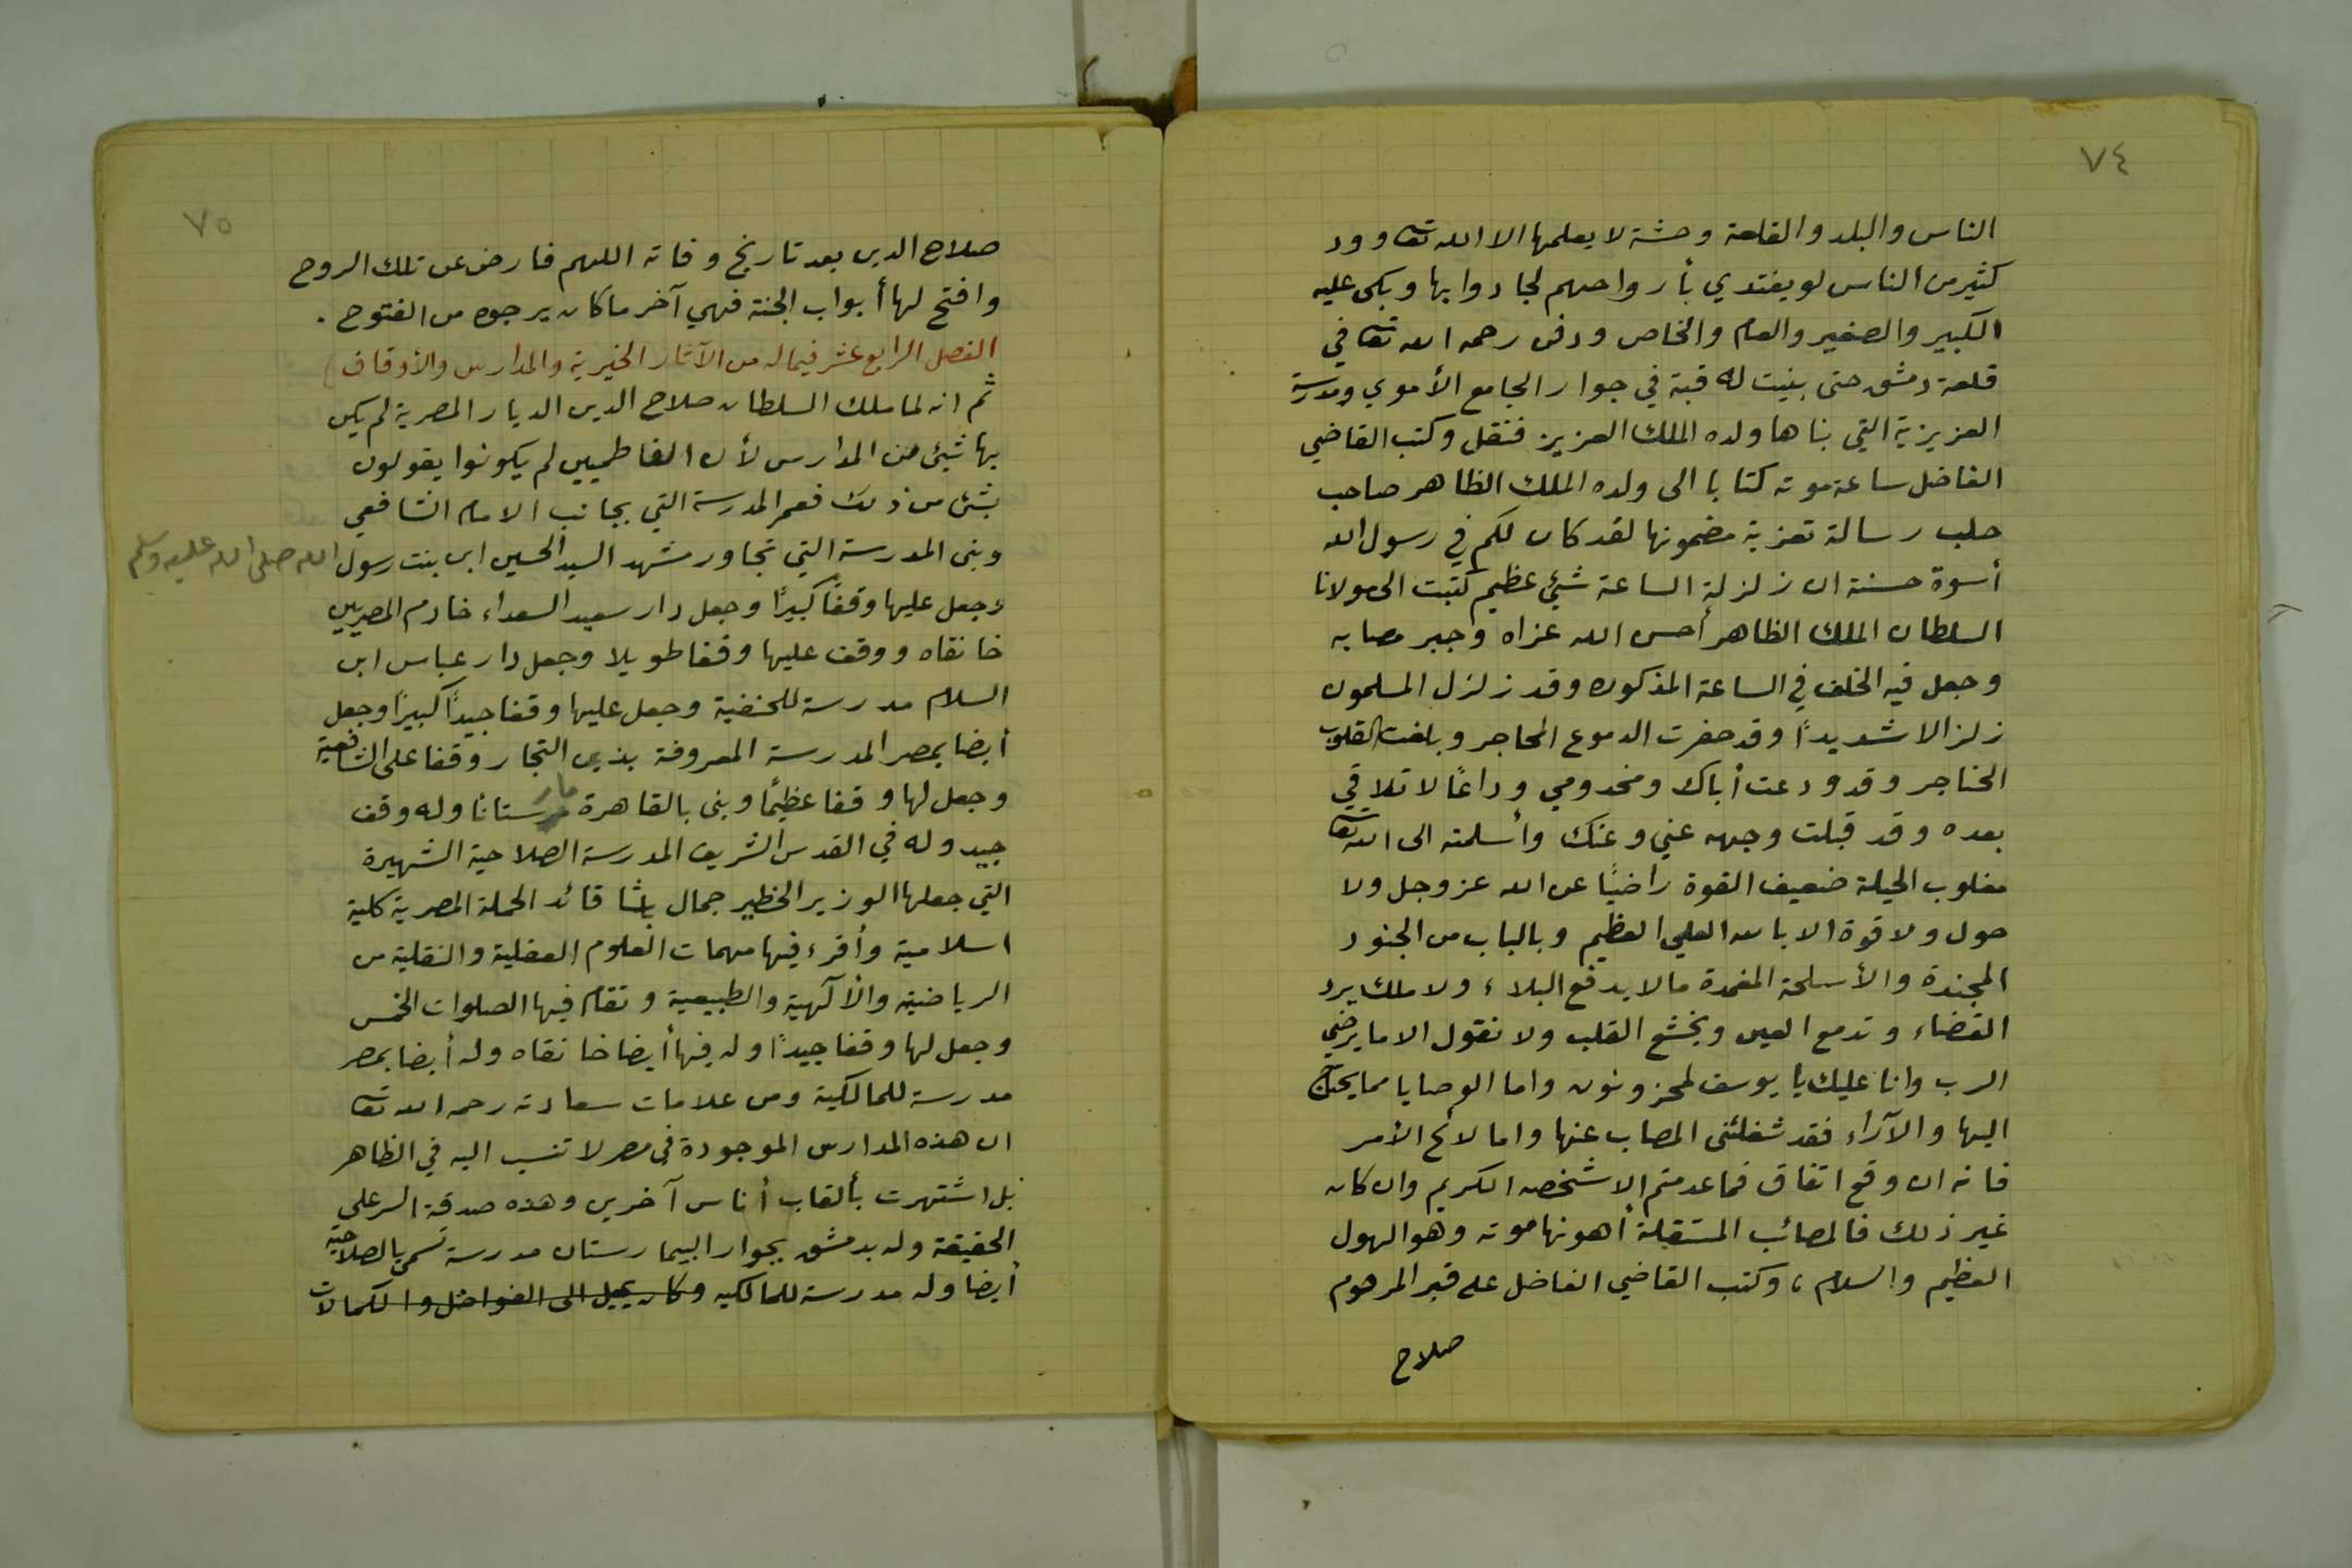 ٧٤
الناس والبلد والقلعة وحشة لا يعلمها الا الله تعا وود
كثير من الناس لو يفتدي بأرواحهم لجادوا بها وبكى عليه
الكبير والصغير والعام والخاص ودفن رحمه الله تعا في
قلعة دمشق حتى بنيت له قبة في جوار الجامع الأموي ومدرسة
العزيزية التي بناها ولده الملك العزيز فنقل وكتب القاضي
الفاضل ساعة موته كتابا الى ولده الملك الظاهر صاحب
حلب رسالة تعزية مضمونها لقد كان لكم في رسول الله
أسوة حسنة ان زلزلة الساعة شيئ عظيم كتبت الى مولانا
السلطان الملك الظاهر أحسن الله عزاه وجبر مصابه
وجعل فيه الخلف في الساعة المذكوره وقد زلزل المسلمون
زلزالا شديداً وقد حفرت الدموع المحاجر وبلغت القلوب
الحناجر وقد ودعت أباك ومخدومي وداعًا لا تلاقي
بعده وقد قبلت وجهه عني وعنك وأسلمته الى الله تعا
مغلوب الحيلة ضعيف القوة راضيًا عن الله عز وجل ولا
حول ولا قوة الا بالله العلي العظيم وبالباب من الجنود
المجندة والأسلحة المغمدة مالا يدفع البلاء ولا ملك يرد
القضاء وتدمع العين ويخشع القلب ولا نقول الا ما يرضي
الرب وانا عليك يا يوسف لمحزونون واما الوصايا مما يحتاج
اليها والآراء فقد شغلتنى المصاب عنها واما لائح الأمر
فانه ان وقع اتفاق فما عدمتم الا شخصه الكريم وان كان
غير ذلك فالمصائب المستقبلة أهونها موته وهو الهول
العظيم والسلام، وكتب القاضي الفاضل على قبر المرحوم
صلاح
٧٥
صلاح الدين بعد تاريخ وفاته اللهم فارض عن تلك الروح
وافتح لها أبواب الجنة فهي آخر ما كان يرجوه من الفتوح.
الفصل الرابع عشر فيما له من الآثار الخيرية والمدارس والأوقاف)
ثم انه لما ملك السلطان صلاح الدين الديار المصرية لم يكن
بها شيئ من المدارس لأن الفاطميين لم يكونوا يقولون
بشئ من ذلك فعمر المدرسة التي بجانب الامام الشافعي
وبنى المدرسة التي تجاور مشهد السيد الحسين ابن بنت رسول الله صلى الله عليه وسلم
وجعل عليها وقفًا كبيرًا وجعل دار سعيد السعداء خادم المصريين
خانقاه ووقف عليها وقفا طويلا وجعل دار عباس ابن
السلام مدرسة للحنفية وجعل عليها وقفا جيداً كبيرًا وجعل
أيضا بمصر المدرسة المعروفة بذين التجار وقفا على الشافعية
وجعل لها وقفا عظيمًا وبنى بالقاهرة مارستانا وله وقف
جيد وله في القدس الشريف المدرسة الصلاحية الشهيرة
التي جعلها الوزير الخطير جمال باشا قائد الحملة المصرية كلية
اسلامية وأقرء فيها مهمات العلوم العقلية والنقلية من
الرياضية والألهية والطبيعية وتقام فيها الصلوات الخمس
وجعل لها وقفا جيداً وله فيها أيضا خانقاه وله أيضا بمصر
مدرسة للمالكية ومن علامات سعادته رحمه الله تعا
ان هذه المدارس الموجودة في مصر لا تنسب اليه في الظاهر
بل اشتهرت بألقاب أناس آخرين وهذه صدقة السر على
الحقيقة وله بدمشق بجوار البيمارستان مدرسة تسمى بالصلاحية
أيضا وله مدرسة للمالكيه وكان يميل الى الفواضل والكمالات